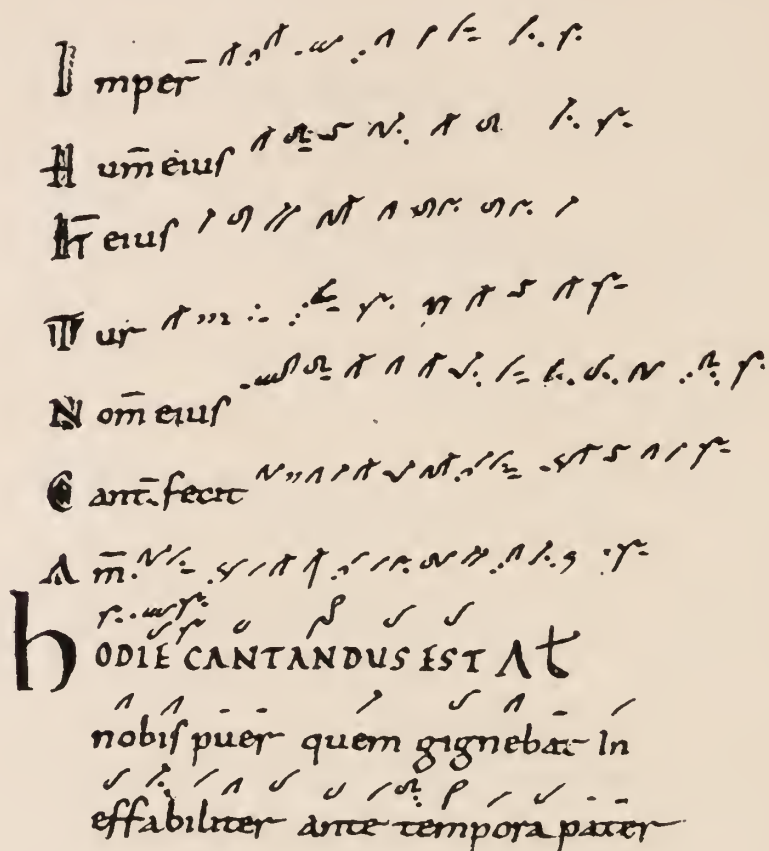 Imper̄
Hum̄ eius
Et̄ eius
Tur
Nom̄ eius
Cant̄. fecit
Am̄.
hODIE CANTANDUS EST At
nobis puer quem gignebat In
effabiliter ante tempora pater